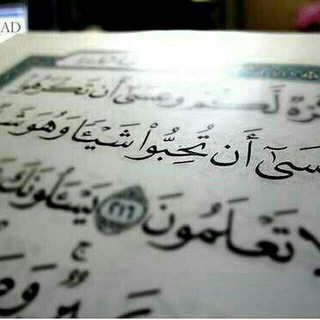 AD
كُرْهٌ لَّكُمْ وَعَسَىٰٓ أَن تَكْرَهُوا۟
عَسَىٰٓ أَن تُحِبُّوا۟ شَيْـًٔا وَهُوَ شَ
لَا تَعْلَمُونَ ٢١٦ يَسْـَٔلُونَكَ